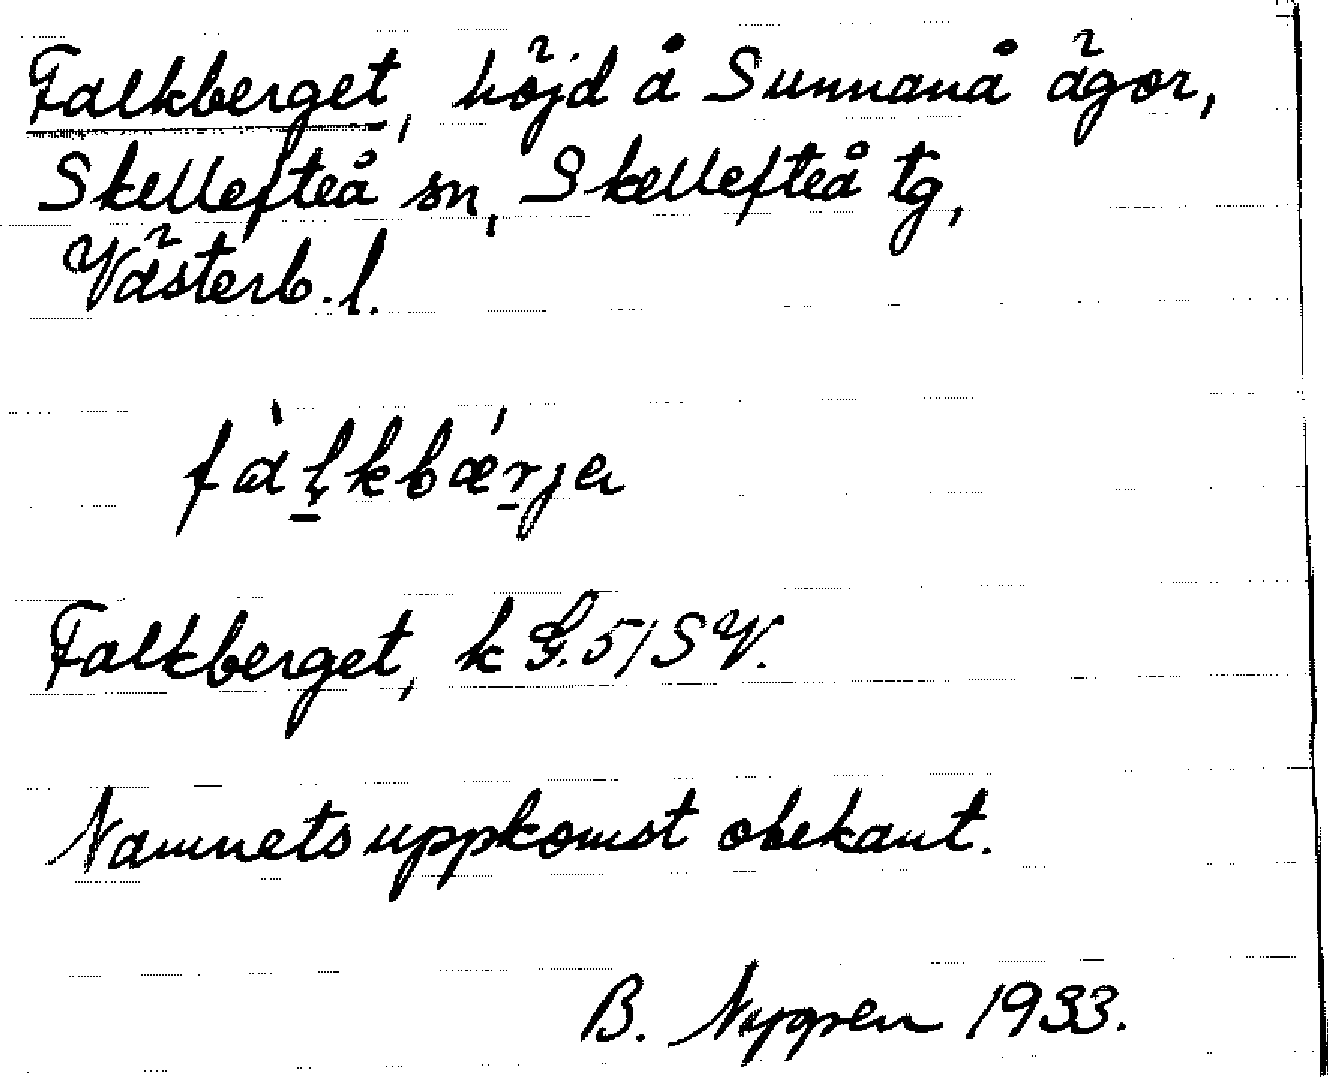 Falkberget, höjd å Sunnanå ägor,
Skellefteå sn, Skellefteå tg,
Västerb. l.
fàḷkbǽrja
Falkberget, k G. 5/SV.
Namnets uppkomst obekant.
B. Nygren 1933.